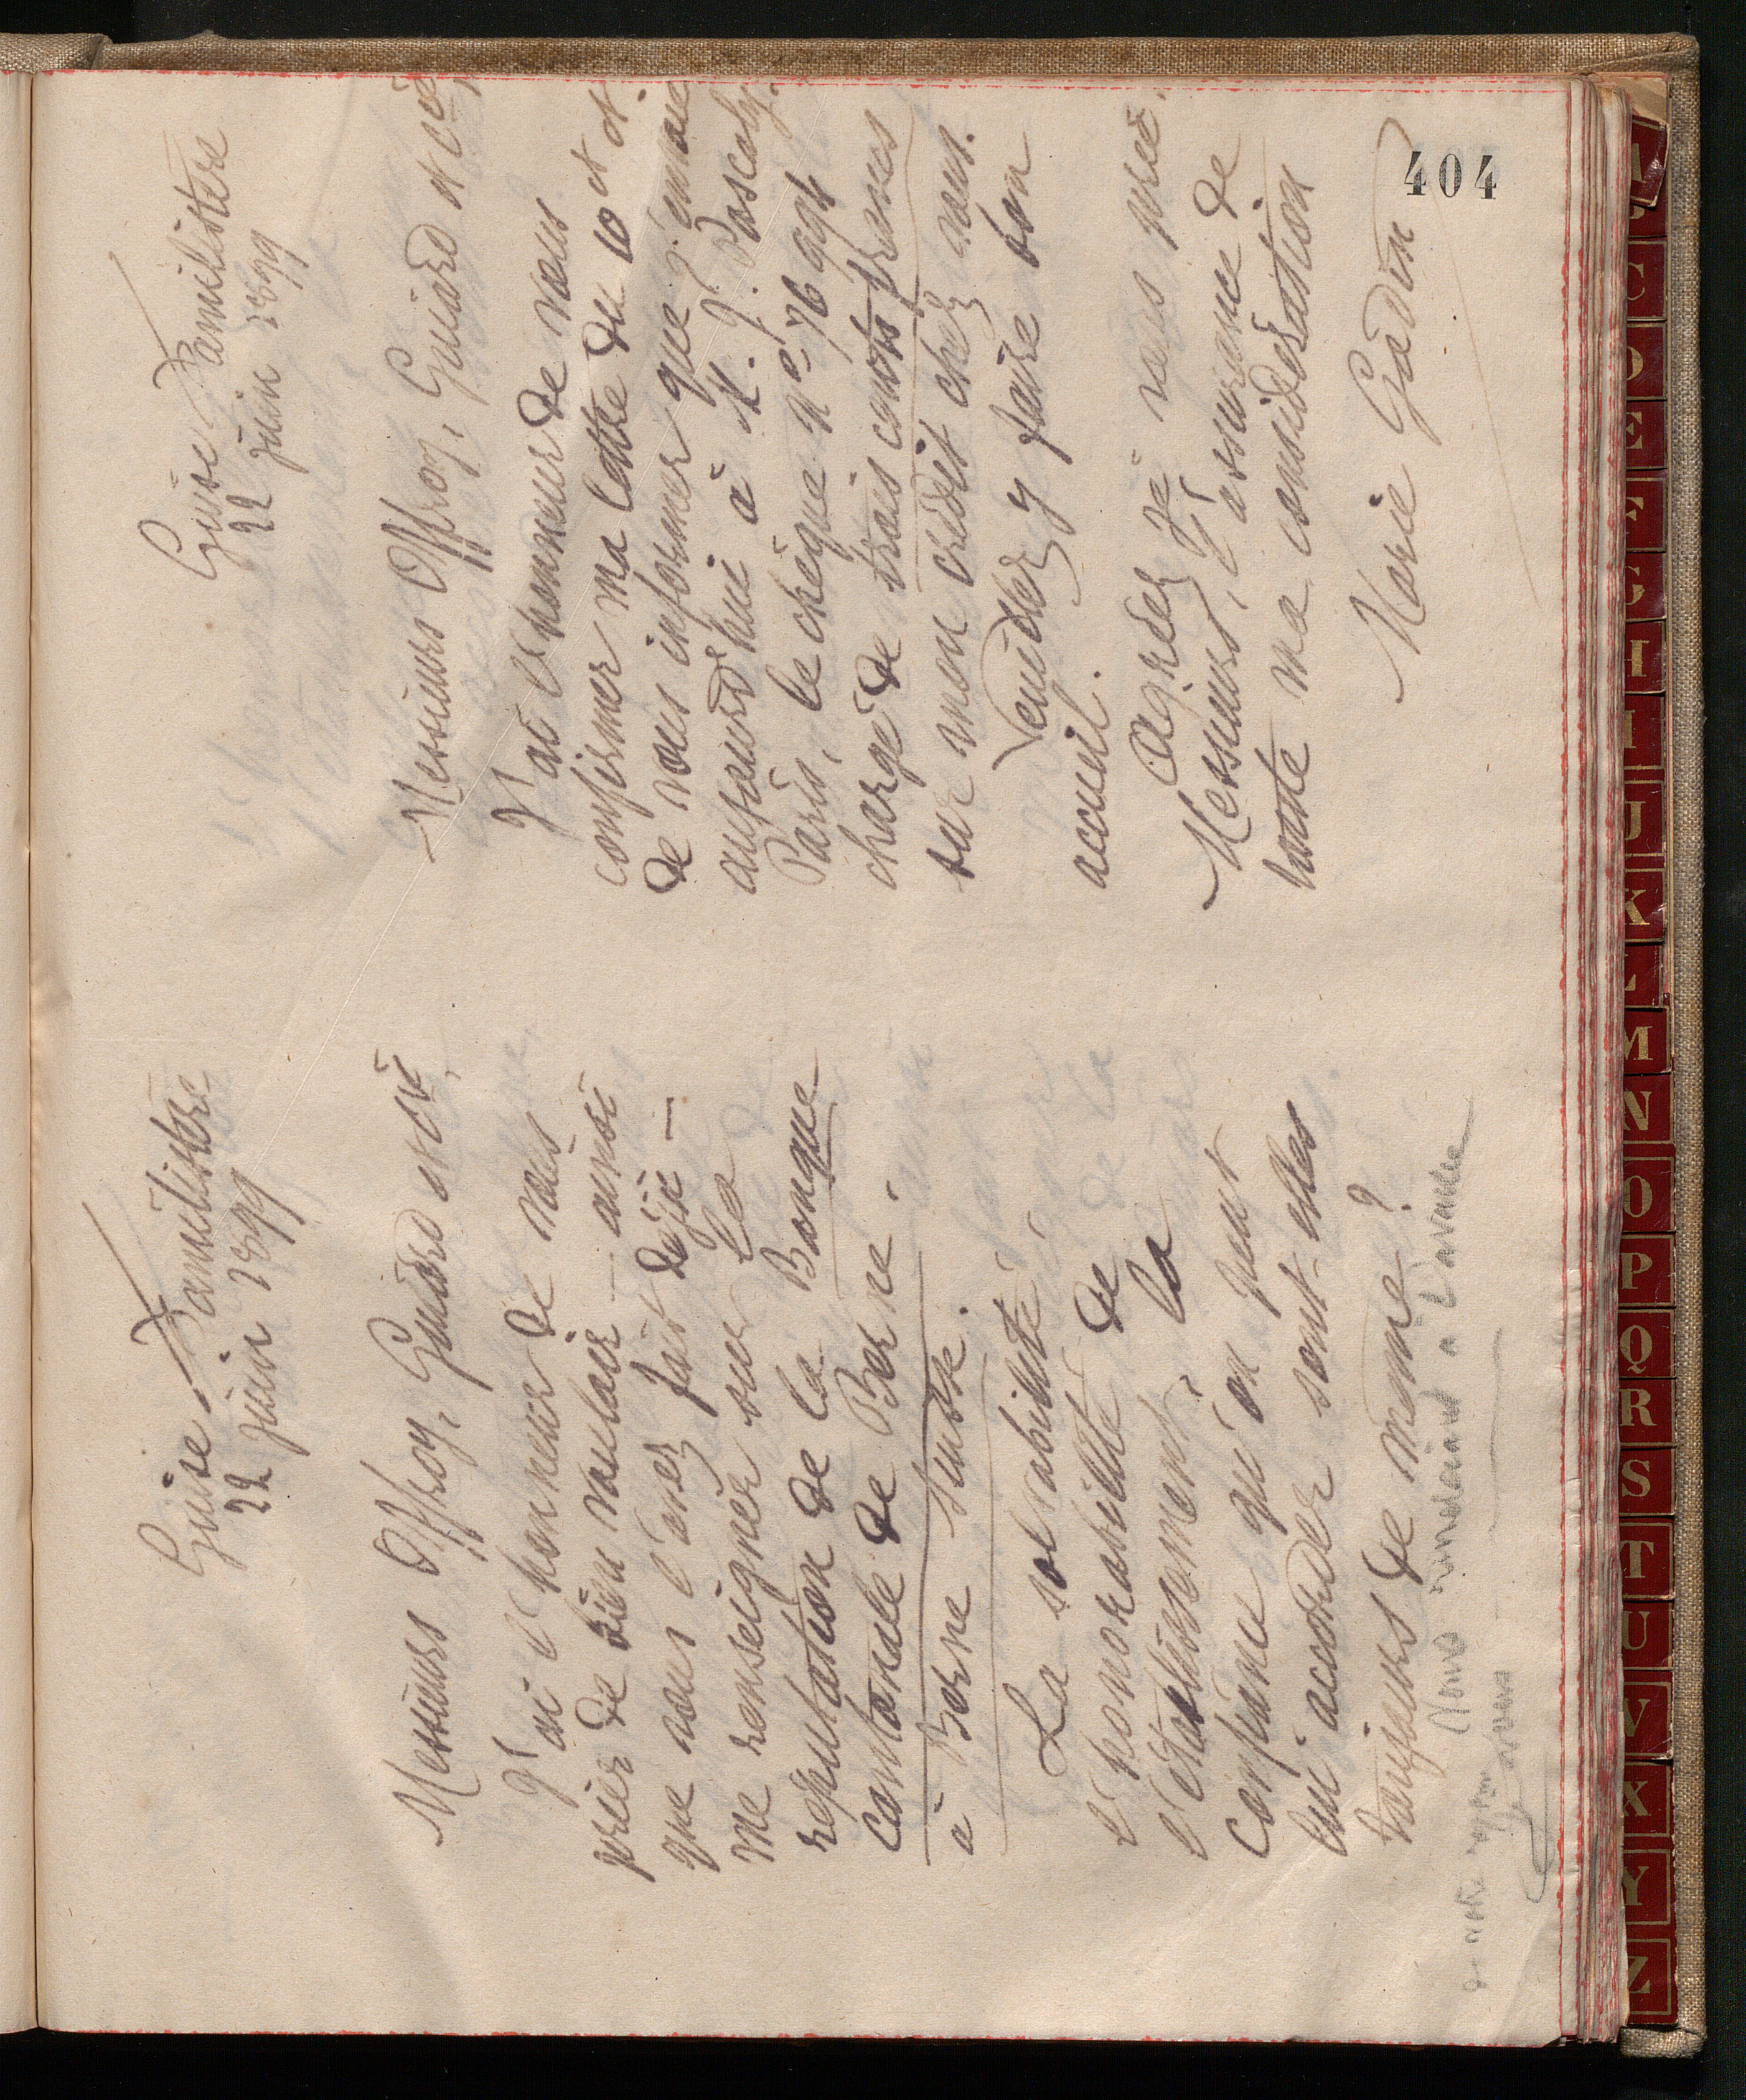 404
Guise Familistère
22 juin 1899
Messieurs Offroy, Guiard et Cie
J'ai l'honneur de vous
prier de bien vouloir ainsi
que vous l'avez fait déjà —
me renseigner sur la
réputation de la Banque
cantonale de Berne.
à Berne Suisse.
La solvabilité
l'honorabilité de
l'établissement, la
confiance qu'on peut
lui accorder sont-elles
toujours de même ?
Nous
à l'avance
Guise Familistère
22 juin 1899
Messieurs Offroy, Guiard et Cie
J'ai l'honneur de vous
confirmer ma lettre du 10 ct et
de vous informer que j'envoie
aujourd'hui à M. J. Pascaly
Paris, le chèque No 76994
chargé de trois cents francs
sur mon crédit chez vous.
Veuillez y faire bon
accueil.
Agréez je vous prie,
Messieurs, l'assurance de
toute ma considération
Marie Godin